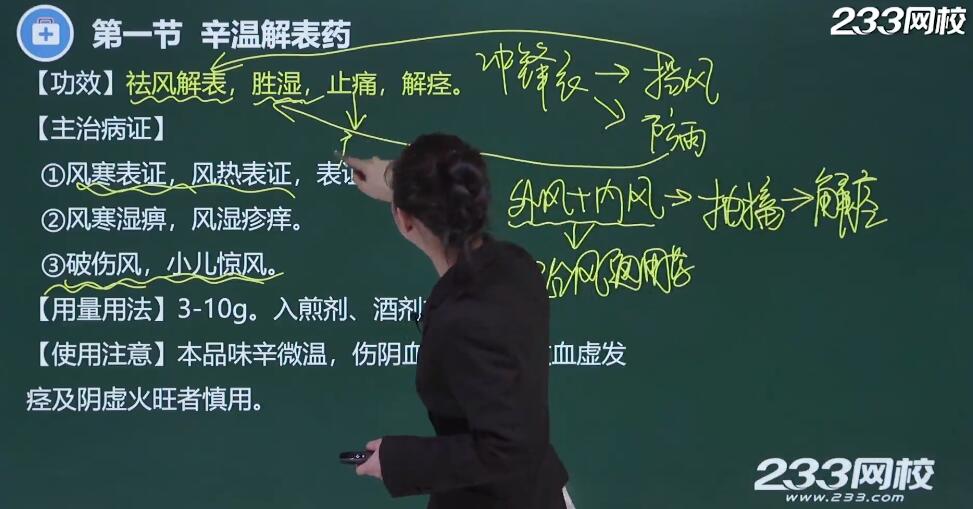 第一节 辛温解表药
233网校
【功效】祛风解表，胜湿，止痛，解痉。
冲锋衣→挡风
防雨
【主治病证】
①风寒表证，风热表证，表证
外风+内风→抽搐→解痉
②风寒湿痹，风湿疹痒。
治风通用药
③破伤风，小儿惊风。
【用量用法】3-10g。入煎剂、酒剂
【使用注意】本品味辛微温，伤阴血 血虚发
痉及阴虚火旺者慎用。
233网校
www.233.com